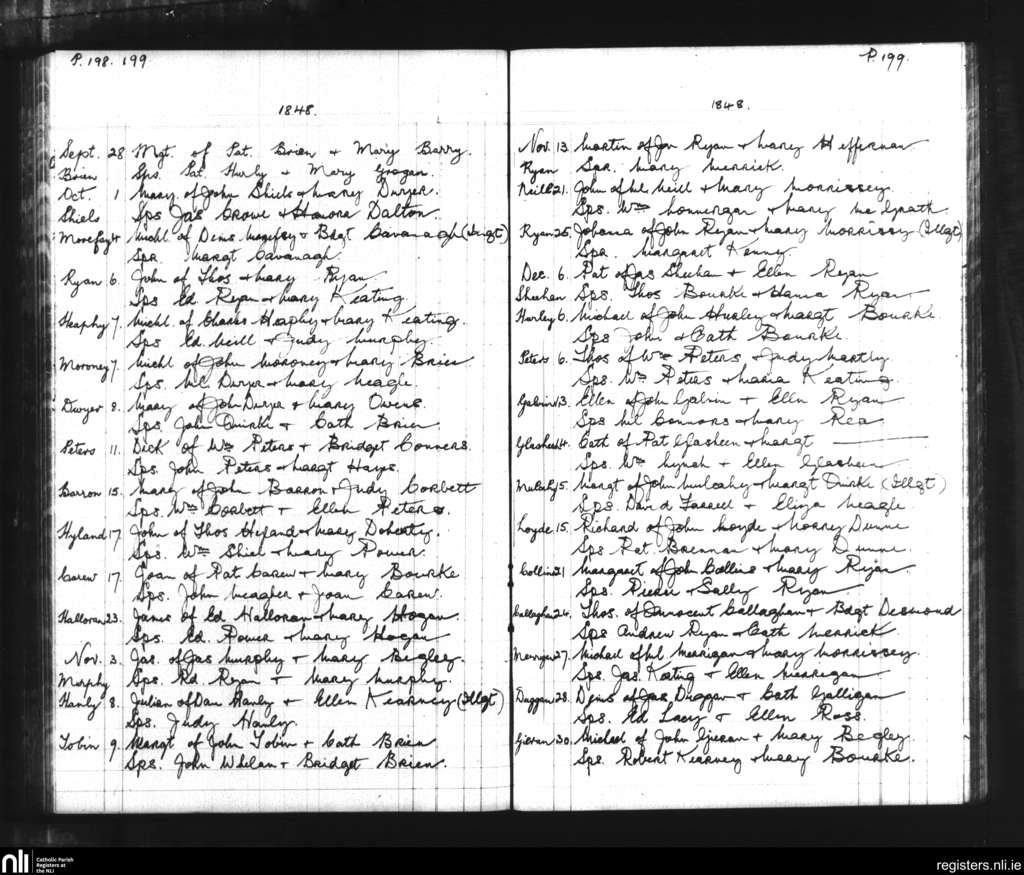 P. 198. 199
1848.
Sept. 28 Mgt. of Pat. Brien + Mary Barry.
Brien Sps. Pat. Hurly + Mary Grogan.
Oct. 1 Mary of John Shiels + Mary Dwyer.
Shiels Sps Jas Crowe + Honora Dalton.
4 Michl of Denis + Bdgt Cavanagh (Illgt)
Spr. Margt Cavanagh.
Ryan 6. John of Thos + Mary Ryan
Sps Ed Ryan + Mary Keating.
Heaphy 7. Michl. of Charles Heaphy + Mary Keating.
Sps Ed. Neill + Judy Murphy.
Moroney 7. Michl of John Moroney + Mary Brien
Sps. Ml Dwyer + Mary Meagle.
Dwyer 8. Mary of John Dwyer + Mary Owens.
Sps. John Quirke + Cath Brien.
Peters 11. Dick of Wm Peters + Bridget Connors.
Sps. John Peters + Margt Hays.
Barron 15. Mary of John Barron + Judy Corbett
Sps. Wm Corbett + Ellen Peters.
Hyland 17. John of Thos Hyland + Mary Doherty.
Sps. Wm Shiel + Mary Power.
Carew 17. Joan of Pat Carew + Mary Bourke
Sps. John Meagher + Joan Carew.
Halloran 23. James of Ed Halloran + Mary Hogan
Sps. Ed. Power + Mary Hogan
Nov. 3. Jas. of Jas Murphy + Mary Begley.
Murphy Sps. Rd Ryan + Mary Murphy.
Hanly 8. Julian of Dan Hanly + Ellen Kearney (Illgt)
Sps. Judy Hanly.
Tobin 9. Margt of John Tobin + Cath Brien
Sps. John Whelan + Bridget Brien.
P. 199.
1848.
Nov. 13. Martin of Jn Ryan + Mary Heffernan
Ryan Spr. Mary Merrick.
Neill 21. John of Ml Neill + Mary Morrissey.
Sps. Wm Lonnergan + Mary McGrath.
Ryan 25. Johana of John Ryan + Mary Morrissy (Illgt)
Spr. Margaret Kenny.
Dec. 6. Pat of Jas Sheehan + Ellen Ryan
Sheehan Sps. Thos Bourke + Hana Ryan
Hurley 6. Michael of John Hurley + Margt Bourke.
Sps John + Cath Bourke.
Peters 6. Thos of Wm Peters + Judy Hartly.
Sps. Wm Peters + Maria Keating.
Galvin 13. Ellen of John Galvin + Ellen Ryan
Sps Ml Connors + Mary Rea.
Glasheen 14. Cath of Pat Glasheen + Margt ———
Sps. Wm Lynch + Ellen Glasheen
Mulcahy 15. Margt of John Mulcahy + Margt Quirke (Illgt)
Sps. David Farrell + Eliza Meagle.
Loyde 15. Richard of John Loyde + Norney Dunne
Sps Pat. Brennan + Mary Dunne.
Collins 21 Margaret of John Collins + Mary Ryan
Sps. Pierce + Sally Ryan.
Callaghan 24. Thos. of Innocent Callaghan + Bdgt Desmond
Sps Andrew Ryan + Cath Merrick.
27. Michael of Ml Merrigan + Mary Morrissey.
Sps. Jas. Keatng + Ellen Merrigan
Duggan 28. Denis of Jas Duggan + Cath Galligan
Sps. Ed Lacy + Ellen Ross.
Gieran 30. Michael of John Gieran + Mary Begley.
Sps. Robert Kearney + Mary Bourke.
nli
Catholic Parish
Registers at
the NLI
registers.nli.ie